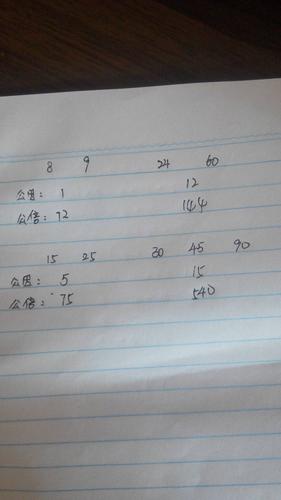 8 9 24 60
公因: 1 12
公倍: 72 144
15 25 30 45 90
公因: 5 15
公倍: 75 540